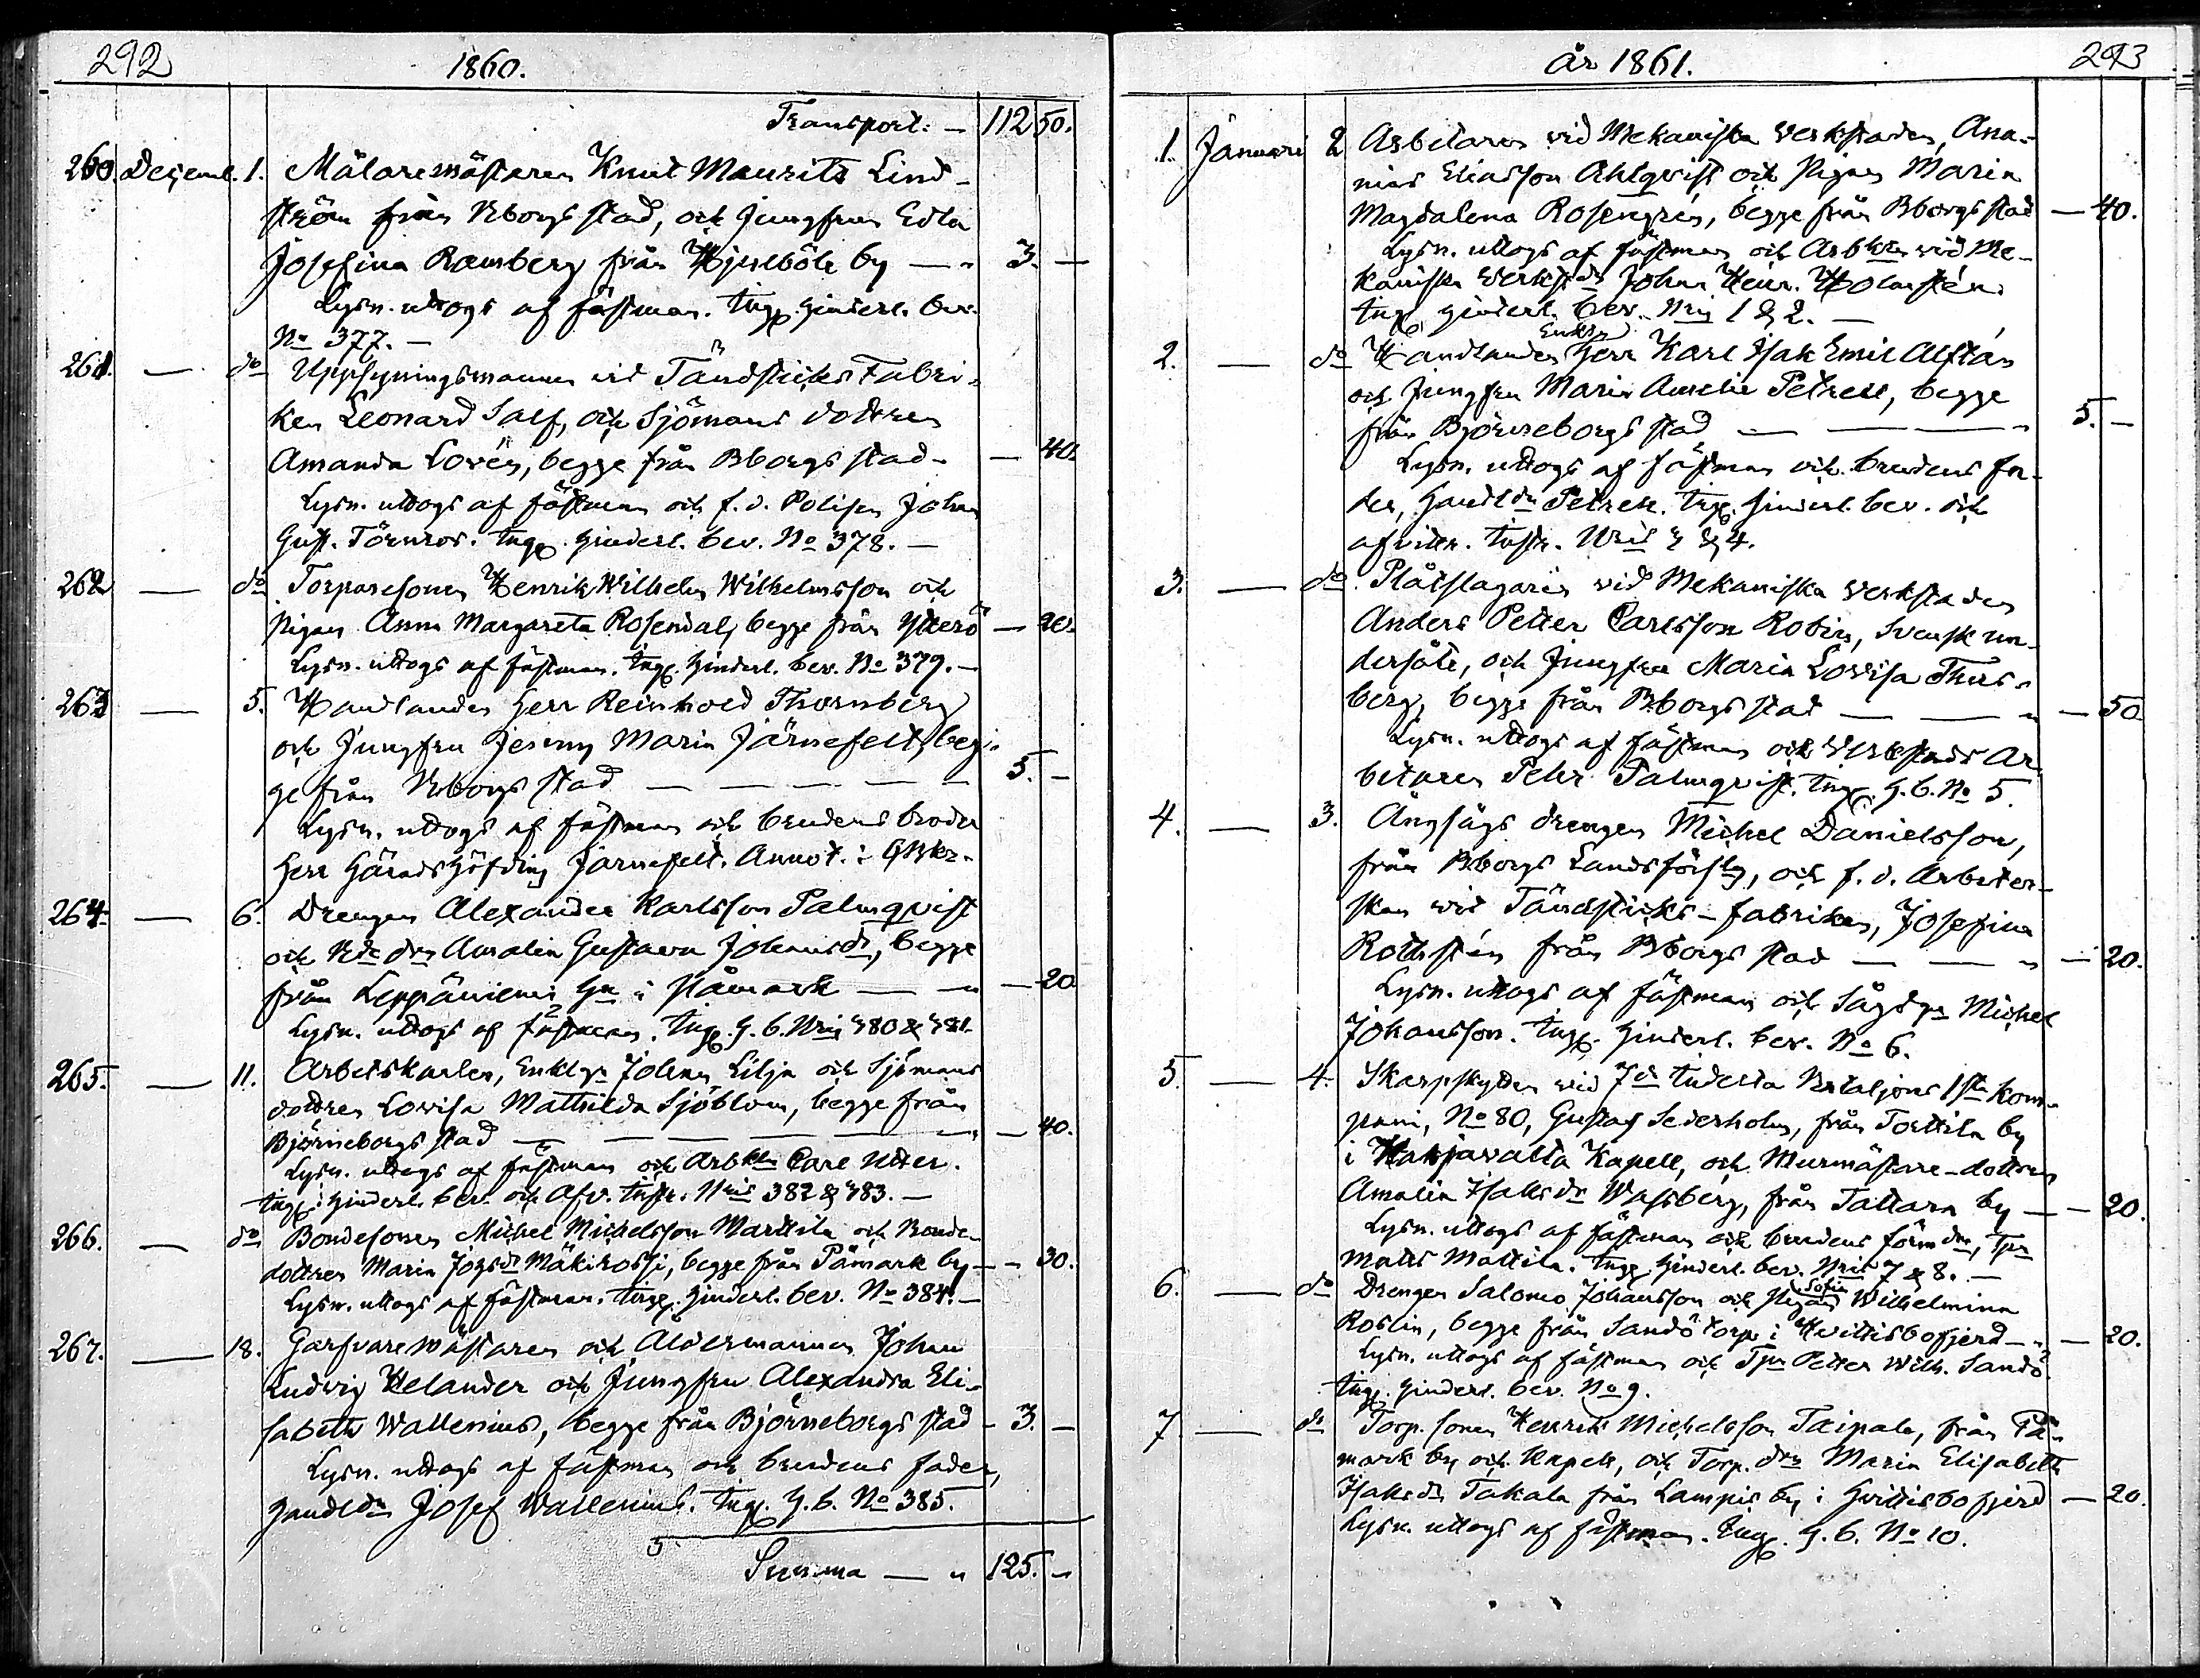 292
1860.
Transport. — 112 50.
260. Decemb. 1. Målaremästaren Knut Maurits Lind-
ström från Bborgs stad, och Jungfrun Edla
Josefina Ramberg från Hjulböle by — " 3. —
Lysn. uttogs af fästman. Ing. hinderl. bev.
No 377. —
261. — do Uppsyningsmannen vid Tändsticks Fabri-
ken Leonard Salf, och Sjömans dottren
Amanda Lovén, begge från Bborgs stad — — 40.
Lysn. uttogs af fästman och f. d. Polisen Johan
Gust. Törnros. Ing. hinderl. bev. No 378. —
262 — do Torparesonen Henrik Wilhelm Wilhelmsson och
Pigan Anna Margareta Rosendal, begge från Ytterö — 20.
Lysn. uttogs af fästman. Ing. hinderl. bev. No 379. —
263 — 5. Handlanden Herr Reinhold Thornberg
och Jungfru Jenny Maria Järnefelt, beg-
ge från Bborgs stad — — — — 5. —
Lysn. uttogs af fästman och brudens broder
Herr Häradshöfding Järnefelt. Annot. i
264. — 6. Drengen Alexander Karlsson Palmqvist
och Bde drn Amalia Gustava Johansdr, begge
från Leppäniemi hn i Påmark — " — 20
Lysn. uttogs af fästman. Ing. h. b. Nris 380 & 381.
265. — 11. Arbetskarlen, Enkl. Johan Lilja och Sjömans
dottren Lovisa Mathilda Sjöblom, begge från
Björneborgs stad — — — — " — 40.
Lysn. uttogs af fästman och Arbkln Carl Utter.
Ing. hinderl. bev. och Afv. Nris 382 & 383. —
266. — do Bondesonen Michel Michelsson Marttila och Bonde-
dottren Maria Jögsdr Mäkirossi, begge från Påmark by — — 30.
Lysn. uttogs af fästman. Ing. hinderl. bev. No 384. —
267. — 18. Garfvaremästaren och Åldermannen Johan
Ludvig Helander och Jungfru Alexandra Eli-
sabeth Wallenius, begge från Björneborgs stad — 3. —
Lysn. uttogs af fästman och brudens fader,
Handldn Josef Wallenius. Ing. h. b. No 385.
Summa — " 125. "
år 1861.
293
1. Januari 2 Arbetaren vid Mekaniska Verkstaden, Ana-
nias Eliasson Ahlqvist och Pigan Maria
Magdalena Rosengrén, begge från Bborgs stad — 40.
Lysn. uttogs af fästman och Arbkln vid Me-
kaniska Verkstdn Johan Henr. Holmstén.
Ing. hinderl. bev. Nris 1 & 2. —
2. — do Handlanden Herr Karl Isak Emil Alftán
och Jungfru Maria Aurelie Petrell, begge
från Björneborgs stad — — — " 5. —
Lysn. uttogs af fästman och brudens fa-
der, Handldn Petrell. Ing. hinderl. bev. och
Nris 3 & 4.
3. — do Plåtslagaren vid Mekaniska Verkstaden
Anders Petter Carlsson Robin, Svensk un-
dersåte, och Jungfru Maria Lovisa Thurs-
berg, begge från Bborgs stad — — " — 50
Lysn. uttogs af fästman och Verkstads Ar-
betaren Pehr Palmqvist. Ing. h. b. No 5.
4. — 3. Ångsågs drengen Michel Danielsson,
från Bborgs Landsförslg, och f. d. Arbeter-
skan vid Tändsticks-fabriken, Josefina
Rothstén från Bborgs stad — — " — 20.
Lysn. uttogs af fästman och Sågdrn Michel
Johansson. Ing. hinderl. bev. No 6.
5. — 4. Skarpskytten vid 7de indelta Bataljons 1sta Kom-
pani, No 80, Gustaf Sederholm, från Torttila by
i Harjavalta Kapell, och Murmästare-dottren
Amalia Isaksdr Wassberg, från Tattara by — — 20.
Lysn. uttogs af fästman och brudens förmdn, Tpn
Matts Mattila. Ing. hinderl. bev. Nris 7 & 8. —
6. — do Drengen Salomo Johansson och Pigan Sofia Wilhelmina
Roslin, begge från Sandö torp i Hvittisbofjerd — " — 20.
Lysn. uttogs af fästman och Tpn Petter Wilh. Sandö.
Ing. hinderl. bev. No 9.
7. — do Torp. sonen Henrik Michelsson Taipale, från På-
mark by och Kapell, och Torp. drn Maria Elisabeth
Isaksdr Takala från Lampis by i Hvittisbofjerd — 20.
Lysn. uttogs af fästman. Ing. h. b. No 10.